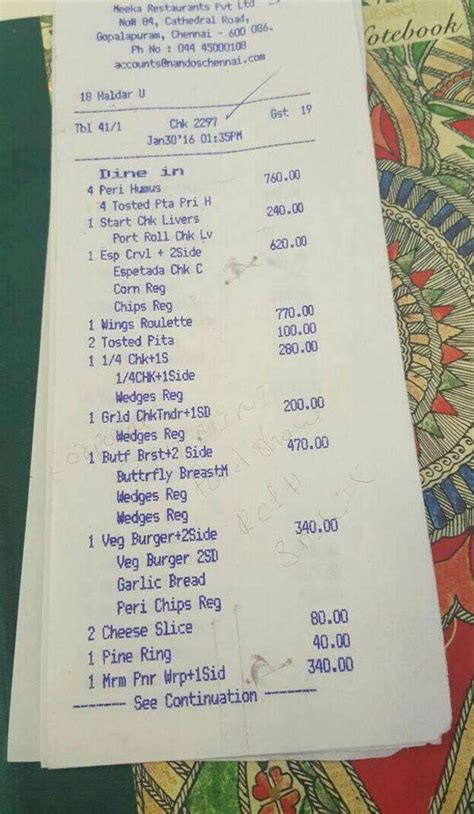 Meeka Restaurants Pvt Ltd
No# 84, Cathedral Road,
Gopalapuram, Chennai - 600 086.
Ph No : 044 45000108
accounts@nandoschennai.com
18 Haldar U
Tbl 41/1 Chk 2297 Gst 19
Jan30'16 01:35PM
Dine in
4 Peri Humus 760.00
4 Tosted Pta Pri H
1 Start Chk Livers 240.00
Port Roll Chk Lv
1 Esp Crvl + 2Side 620.00
Espetada Chk C
Corn Reg
Chips Reg
1 Wings Roulette 770.00
2 Tosted Pita 100.00
1 1/4 Chk+1S 280.00
1/4CHK+1Side
Wedges Reg
1 Grld ChkTndr+1SD 200.00
Wedges Reg
1 Butf Brst+2 Side 470.00
Buttrfly BreastM
Wedges Reg
Wedges Reg
1 Veg Burger+2Side 340.00
Veg Burger 2SD
Garlic Bread
Peri Chips Reg
2 Cheese Slice 80.00
1 Pine Ring 40.00
1 Mrm Pnr Wrp+1Sid 340.00
------- See Continuation -------
otebook